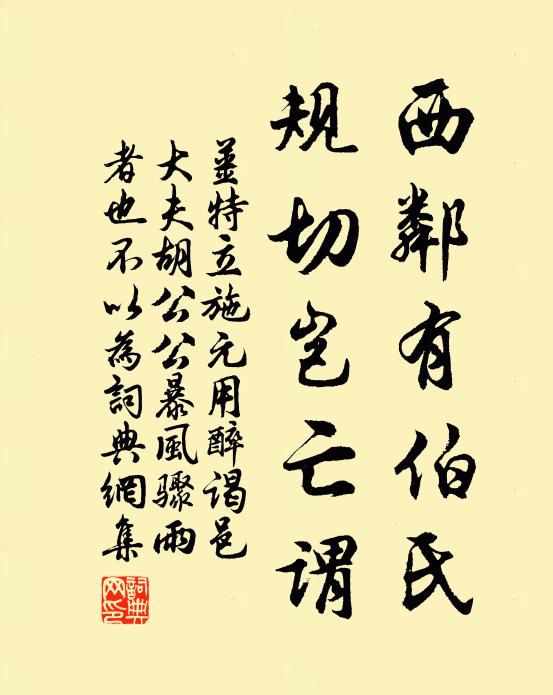 西鄰有伯氏
規切豈亡謂
姜特立施元用醉謁邑
大夫胡公公暴風驟雨
者也不以為詞典網集
詞典
网印